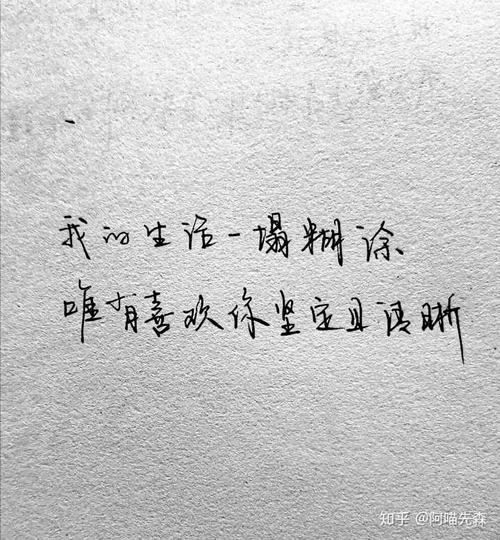 我的生活一塌糊涂、
唯有喜欢你坚定且清晰
知乎 @阿喵先森